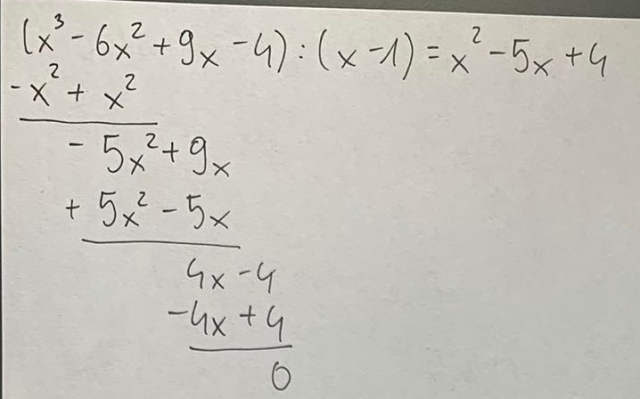 (x³ - 6x² + 9x - 4) : (x - 1) = x² - 5x + 4
- x² + x²
- 5x² + 9x
+ 5x² - 5x
4x - 4
- 4x + 4
0